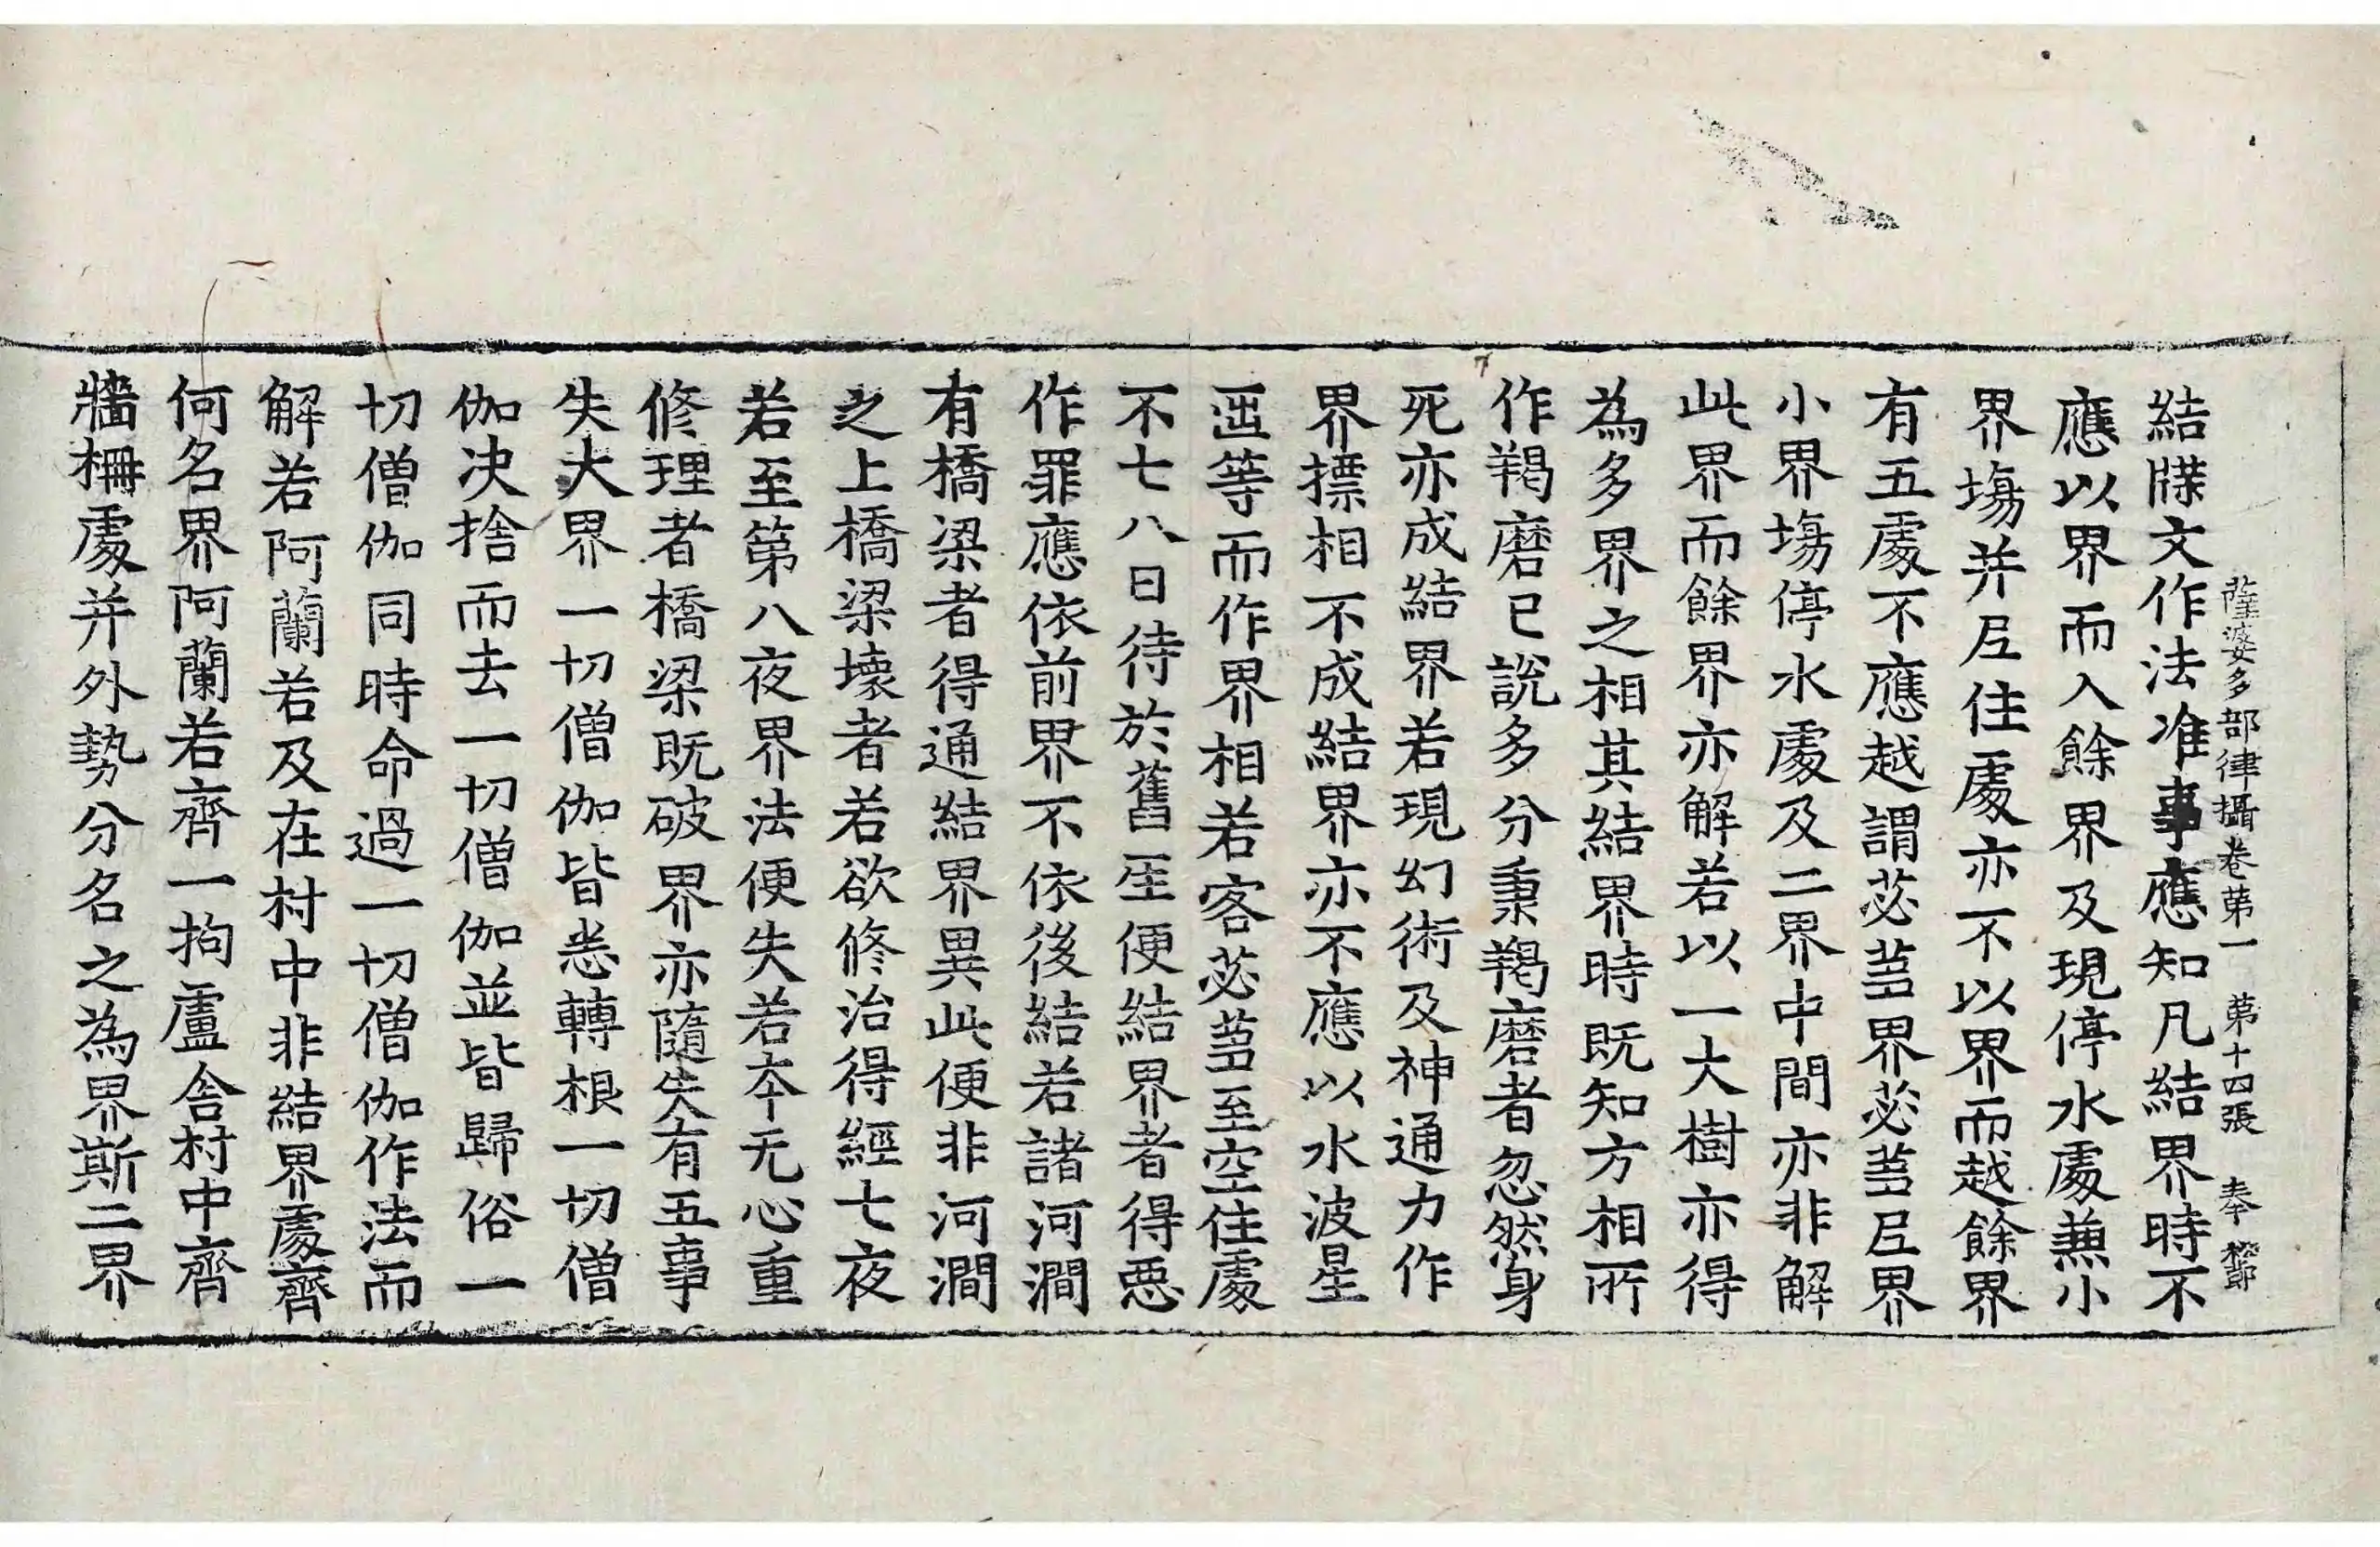 薩婆多部律攝卷第一　第十四張　奉
結牒文作法准事應知凡結界時不
應以界而入餘界及現停水處兼小
界場并尼住處亦不以界而越餘界
有五處不應越謂苾蒭界苾蒭尼界
小界塲停水處及二界中間亦非解
此界而餘界亦解若以一大樹亦得
為多界之相其結界時既知方相所
作羯磨已說多分秉羯磨者忽然身
死亦成結界若現幻術及神通力作
界摽相不成結界亦不應以水波星
等而作界相若客苾蒭至空住處
不七八日待於舊便結界者得惡
作罪應依前界不依後結若諸河澗
有橋梁者得通結界異此便非河澗
之上橋梁壞者若欲修治得經七夜
若至第八夜界法便失若夲无心重
修理者橋梁既破界亦隨失有五事
失大界一切僧伽皆悉轉根一切僧
伽决捨而去一切僧伽並皆歸俗一
切僧伽同時命過一切僧伽作法而
解若阿蘭若及在村中非結界處齊
何名界阿蘭若齊一拘盧舍村中齊
牆柵處并外勢分名之為界斯二界